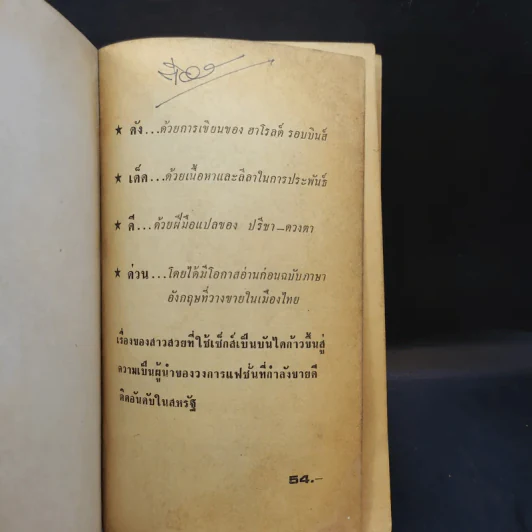 ★ ดัง...ด้วยการเขียนของ ฮาโรลด์ รอบบินส์
★ เด็ด...ด้วยเนื้อหาและลีลาในการประพันธ์
★ ดี...ด้วยฝีมือแปลของ ปรีชา–ดวงตา
★ ด่วน...โดยได้มีโอกาสอ่านก่อนฉบับภาษา
อังกฤษที่วางขายในเมืองไทย
เรื่องของสาวสวยที่ใช้เซ็กส์เป็นบันไดก้าวขึ้นสู่
ความเป็นผู้นำของวงการแฟชั่นที่กำลังขายดี
ติดอันดับในสหรัฐ
54.–